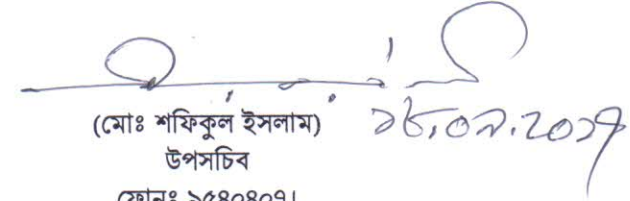 ১৮.০৯.২০১৭
(মোঃ শফিকুল ইসলাম)
উপসচিব
ফোনঃ ৯৫৪০৪০৭।